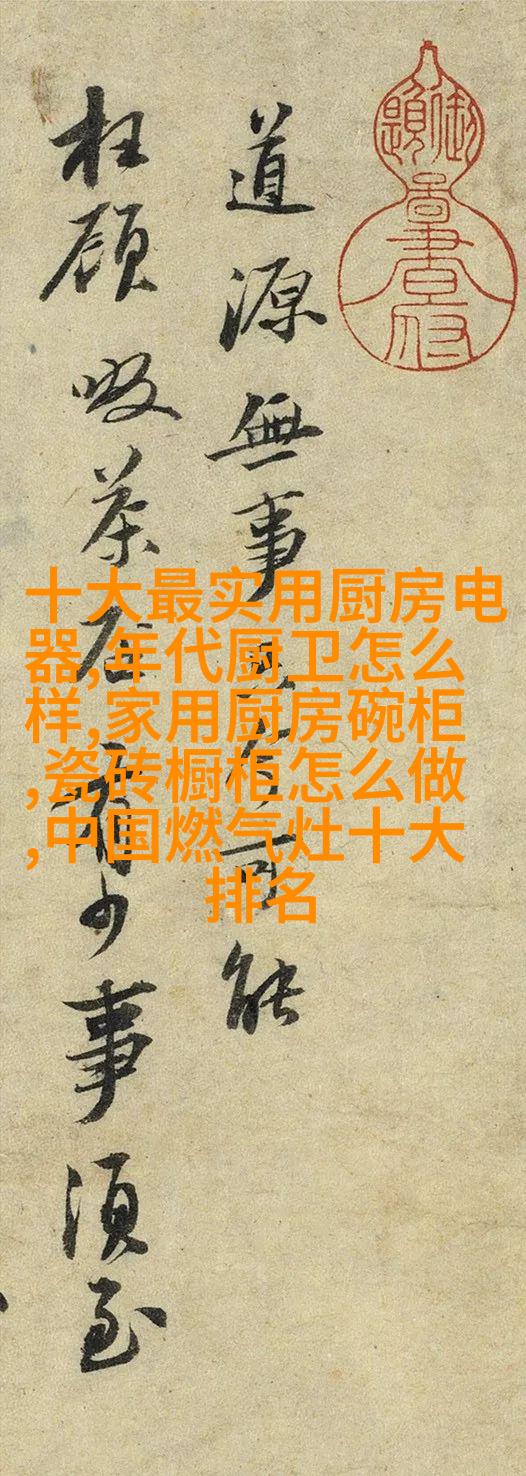 道源無事今可能
枉顧啜茶否有少事須至
十大最实用厨房电
器,年代厨卫怎么
样,家用厨房碗柜
,瓷砖橱柜怎么做
,中国燃气灶十大
排名